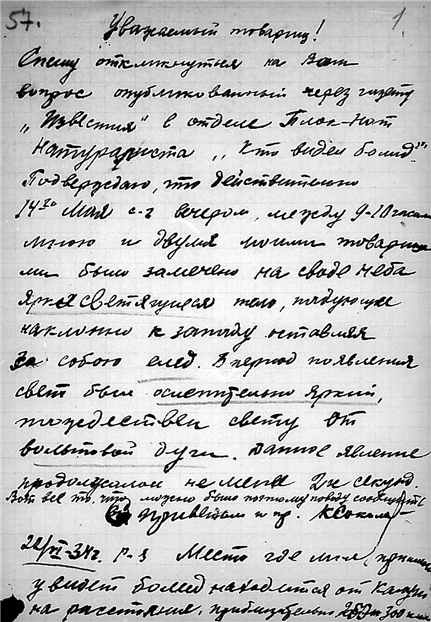 57. 1.
Уважаемый товарищ!
Спешу откликнуться на Ваш
вопрос опубликованный через газету
„Известия" в отделе Блок-нот
натуралиста „Кто видел болид?"
Подверждаю, что действительно
14го мая с-г вечером, между 9-10 часами
мною и двумя моими товарища
ми было замечено на своде неба
ярко светящееся тело, падующее
наклонно к западу оставляя
за собою след. В период появления
свет был ослепительно яркий,
тождествен свету от
вольтовой дуги. Данное явление
продолжалось не менее 2х секунд.
Вот все то, что можно было по этому поводу сообщить
С приветом и пр. К Сокол
22/VI-34г. P-s Место где мы
увидел болид находится от Калуги
на расстоянии, приблизительно 250 300 клм